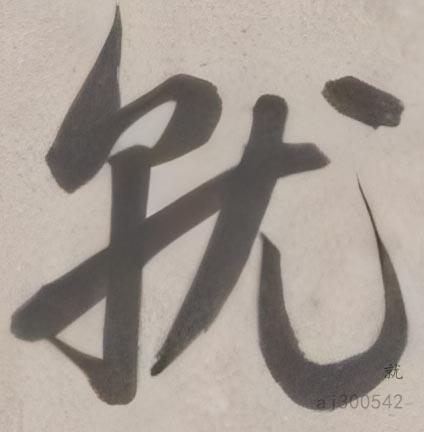 就
就
ai300542